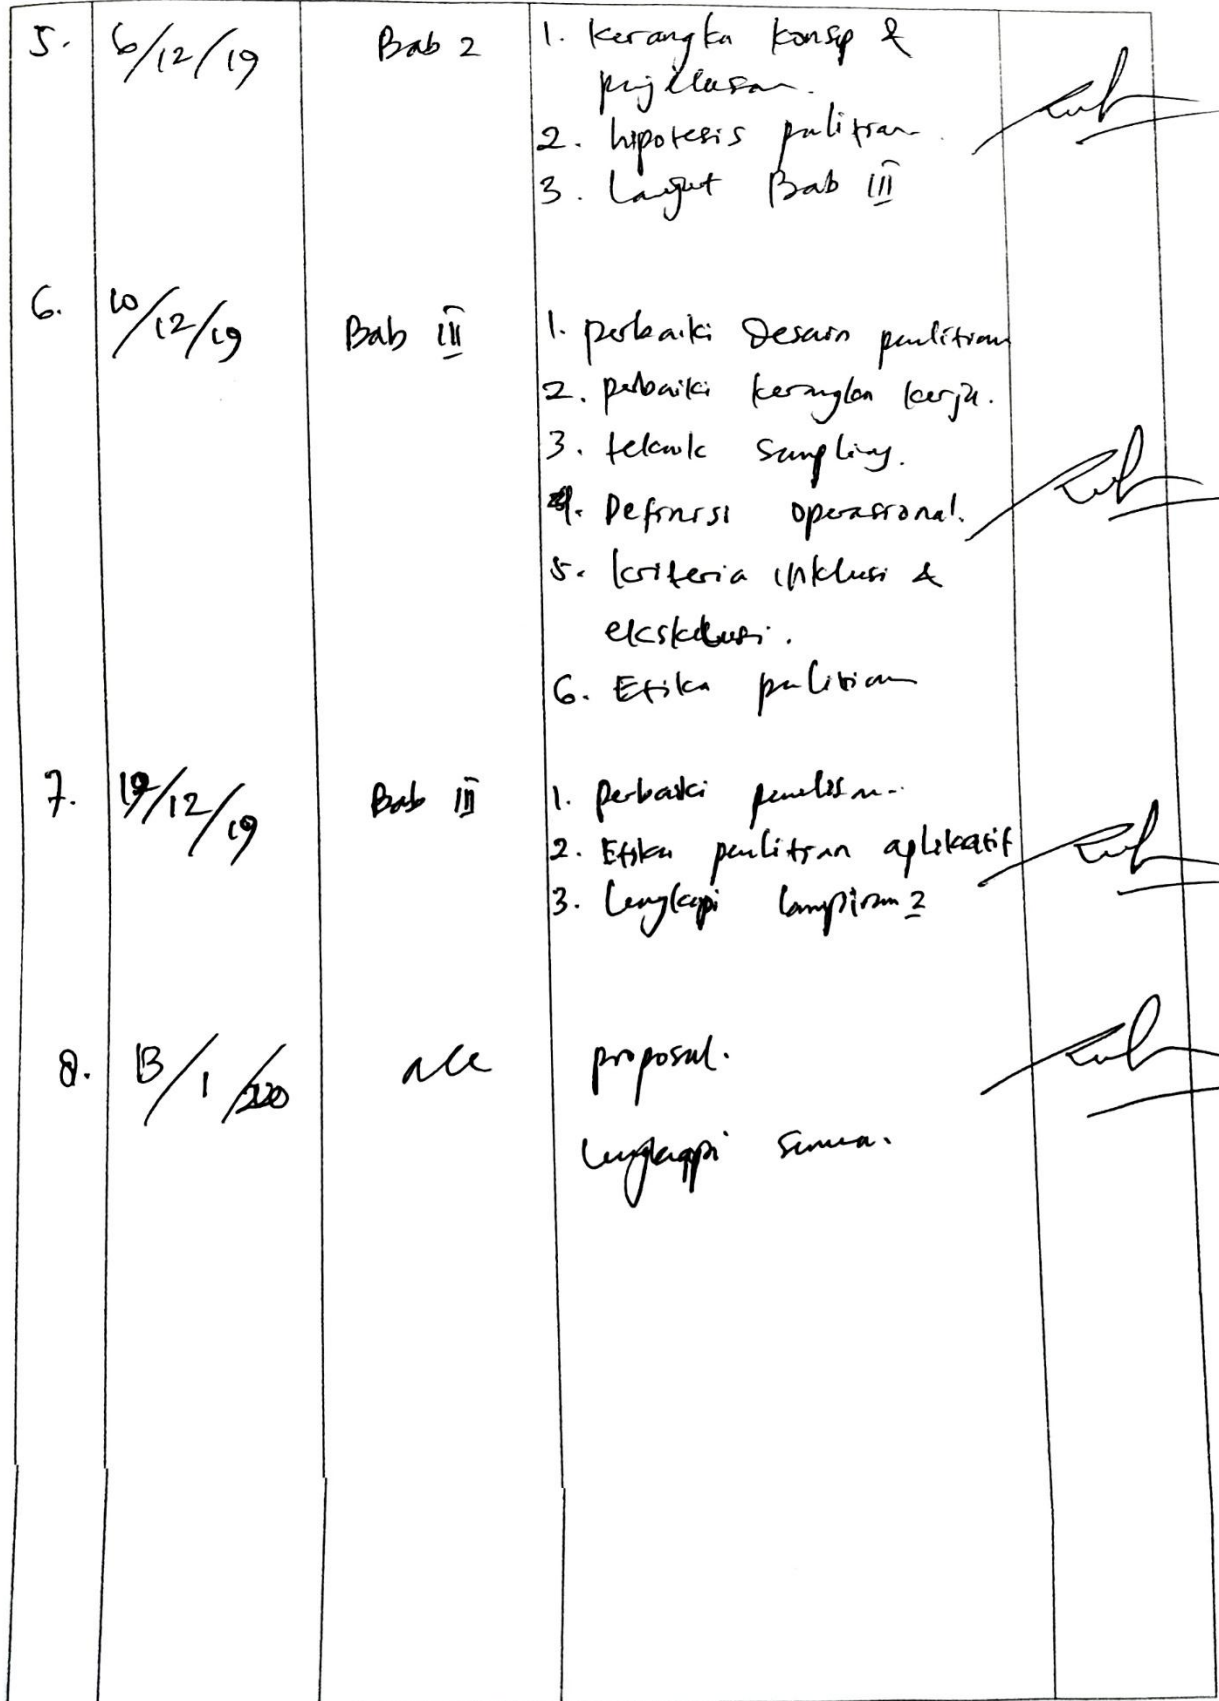 5. 6/12/19 Bab 2 1. Kerangka Konsep &
penjelasan.
2. hipotesis penelitian.
3. Lanjut Bab III
6. 10/12/19 Bab III 1. perbaiki Desain penelitian
2. perbaiki kerangka kerja.
3. teknik sampling.
4. Definisi operasional.
5. kriteria inklusi &
eksklusi.
6. Etika penelitian
7. /12/19 Bab III 1. perbaiki penulisan
2. Etika penelitian aplikatif
3. Lengkapi lampiran2
8. 13/1/2020 acc proposal.
Lengkapi semua.